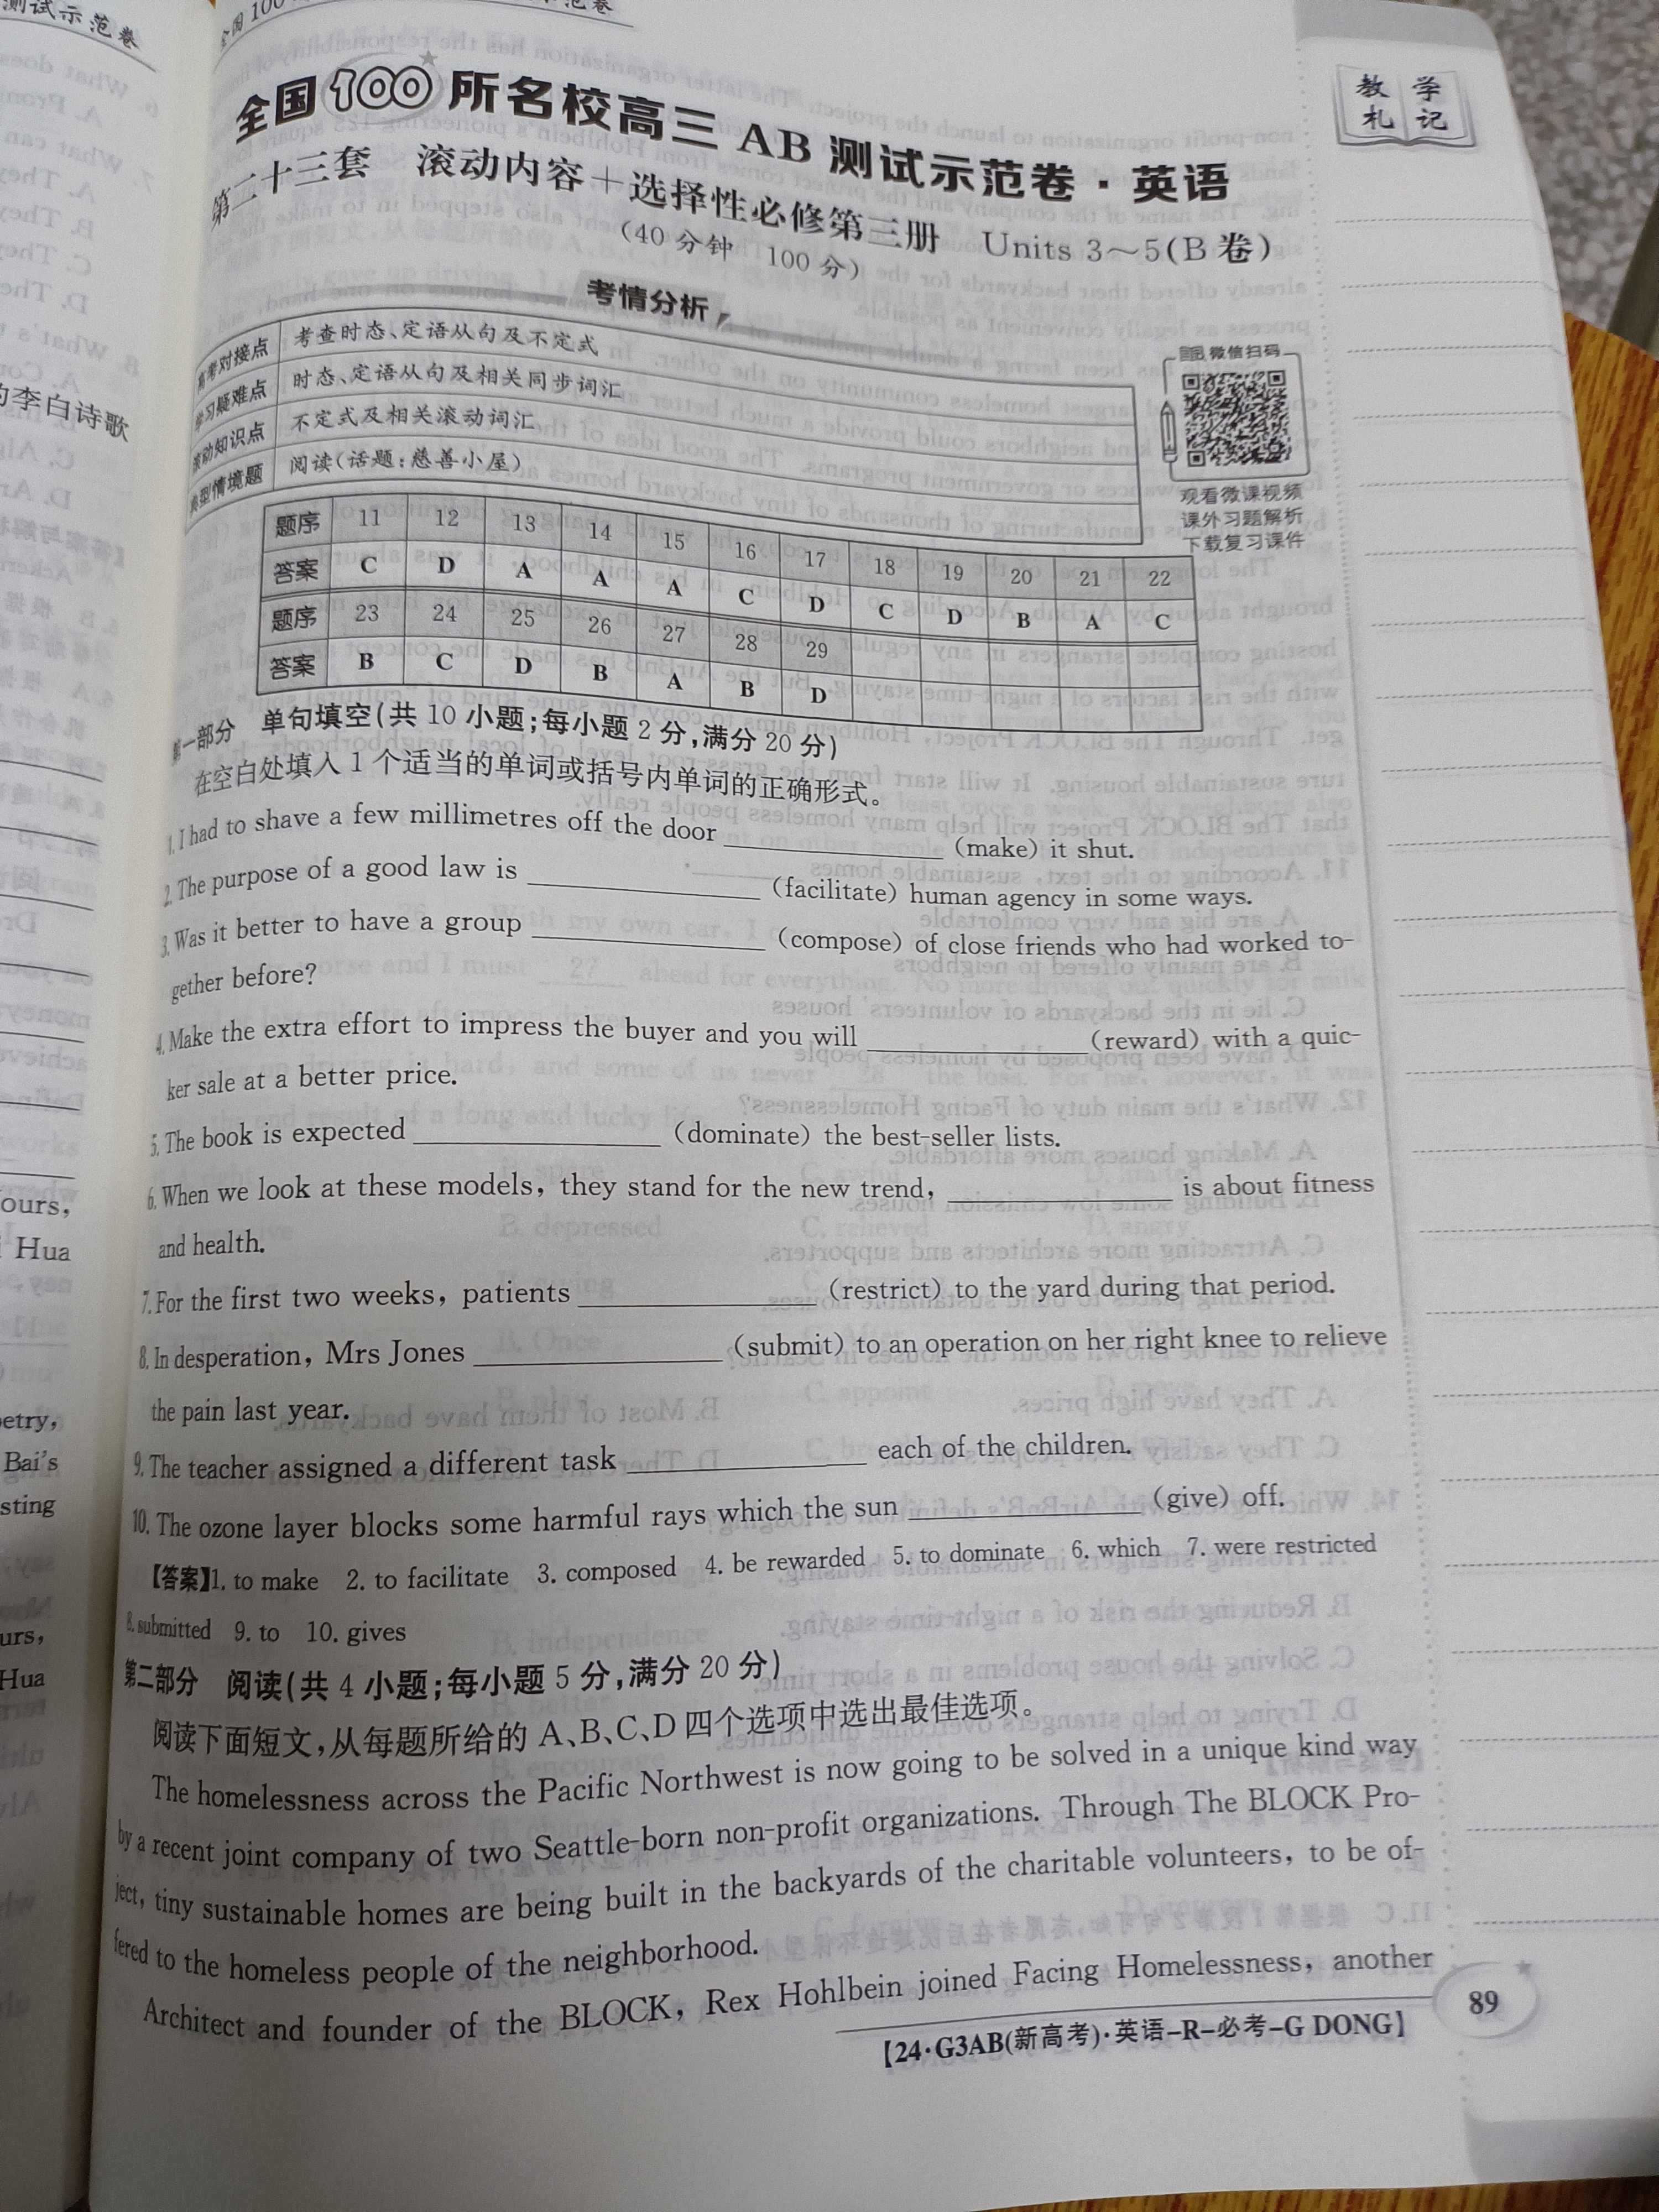 测试示范卷
全国100所名校高三 AB 测试示范卷·英语
第二十三套 滚动内容+选择性必修第三册 Units 3~5(B卷)
(40分钟 100分)
教学
札记
考情分析
高考对接点 考查时态、定语从句及不定式
学习疑难点 时态、定语从句及相关同步词汇
滚动知识点 不定式及相关滚动词汇
典型情境题 阅读(话题:慈善小屋)
微信扫码
观看微课视频
课外习题解析
下载复习课件
题序 11 12 13 14 15 16 17 18 19 20 21 22
答案 C D A A A C D C D B A C
题序 23 24 25 26 27 28 29
答案 B C D B A B D
第一部分 单句填空(共10小题;每小题2分,满分20分)
在空白处填入1个适当的单词或括号内单词的正确形式。
1. I had to shave a few millimetres off the door ________ (make) it shut.
2. The purpose of a good law is ________ (facilitate) human agency in some ways.
3. Was it better to have a group ________ (compose) of close friends who had worked to-
gether before?
4. Make the extra effort to impress the buyer and you will ________ (reward) with a quic-
ker sale at a better price.
5. The book is expected ________ (dominate) the best-seller lists.
6. When we look at these models, they stand for the new trend, ________ is about fitness
and health.
7. For the first two weeks, patients ________ (restrict) to the yard during that period.
8. In desperation, Mrs Jones ________ (submit) to an operation on her right knee to relieve
the pain last year.
9. The teacher assigned a different task ________ each of the children.
10. The ozone layer blocks some harmful rays which the sun ________ (give) off.
【答案】1. to make 2. to facilitate 3. composed 4. be rewarded 5. to dominate 6. which 7. were restricted
8. submitted 9. to 10. gives
第二部分 阅读(共4小题;每小题5分,满分20分)
阅读下面短文,从每题所给的A、B、C、D四个选项中选出最佳选项。
The homelessness across the Pacific Northwest is now going to be solved in a unique kind way
by a recent joint company of two Seattle-born non-profit organizations. Through The BLOCK Pro-
ject, tiny sustainable homes are being built in the backyards of the charitable volunteers, to be of-
fered to the homeless people of the neighborhood.
Architect and founder of the BLOCK, Rex Hohlbein joined Facing Homelessness, another
89
【24·G3AB(新高考)·英语-R-必考-G DONG】
的李白诗歌
ours,
Hua
Bai's
Hua